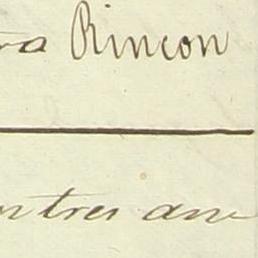 ra Rincon
n tres an